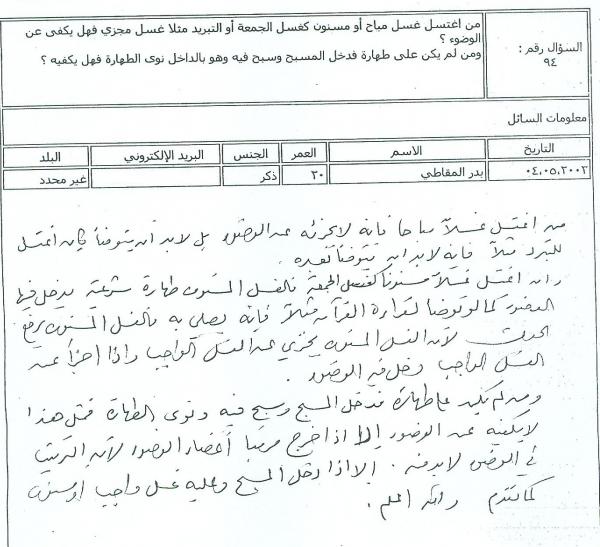 من اغتسل غسل مباح أو مسنون كغسل الجمعة أو التبريد مثلا غسل مجزي فهل يكفى عن
الوضوء ؟
ومن لم يكن على طهارة فدخل المسبح وسبح فيه وهو بالداخل نوى الطهارة فهل يكفيه ؟
السؤال رقم :
٩٤
معلومات السائل
التاريخ الاسم العمر الجنس البريد الإلكتروني البلد
٠٤،٠٥،٢٠٠٢ بدر المقاطي ٢٠ ذكر غير محدد
من اغتسل غسلاً مباحا فإنه لا يجزئه عن الوضوء بل لا بد أن يتوضأ كأن اغتسل
للتبرد مثلاً فإنه لا بد أن يتوضأ بعده.
وإن اغتسل غسلاً مسنوناً كغسل الجمعة فالغسل المسنون طهارة شرعية يدخل فيها
الوضوء كما لو توضأ لقراءة القرآن مثلاً فإنه يصلي به فالغسل المسنون يرفع
الحدث لأن الغسل المسنون يجزي عن الغسل الواجب وإذا أجزأ عن
الغسل الواجب دخل فيه الوضوء.
ومن لم يكن على طهارة فدخل المسبح وسبح فيه ونوى الطهارة فمثل هذا
لا يكفيه عن الوضوء إلا إذا خرج مرتباً أعضاء الوضوء لأن الترتيب
في الوضوء لا بد منه. إلا إذا دخل المسبح وعليه غسل واجب أو مسنون
كما تقدم والله أعلم.